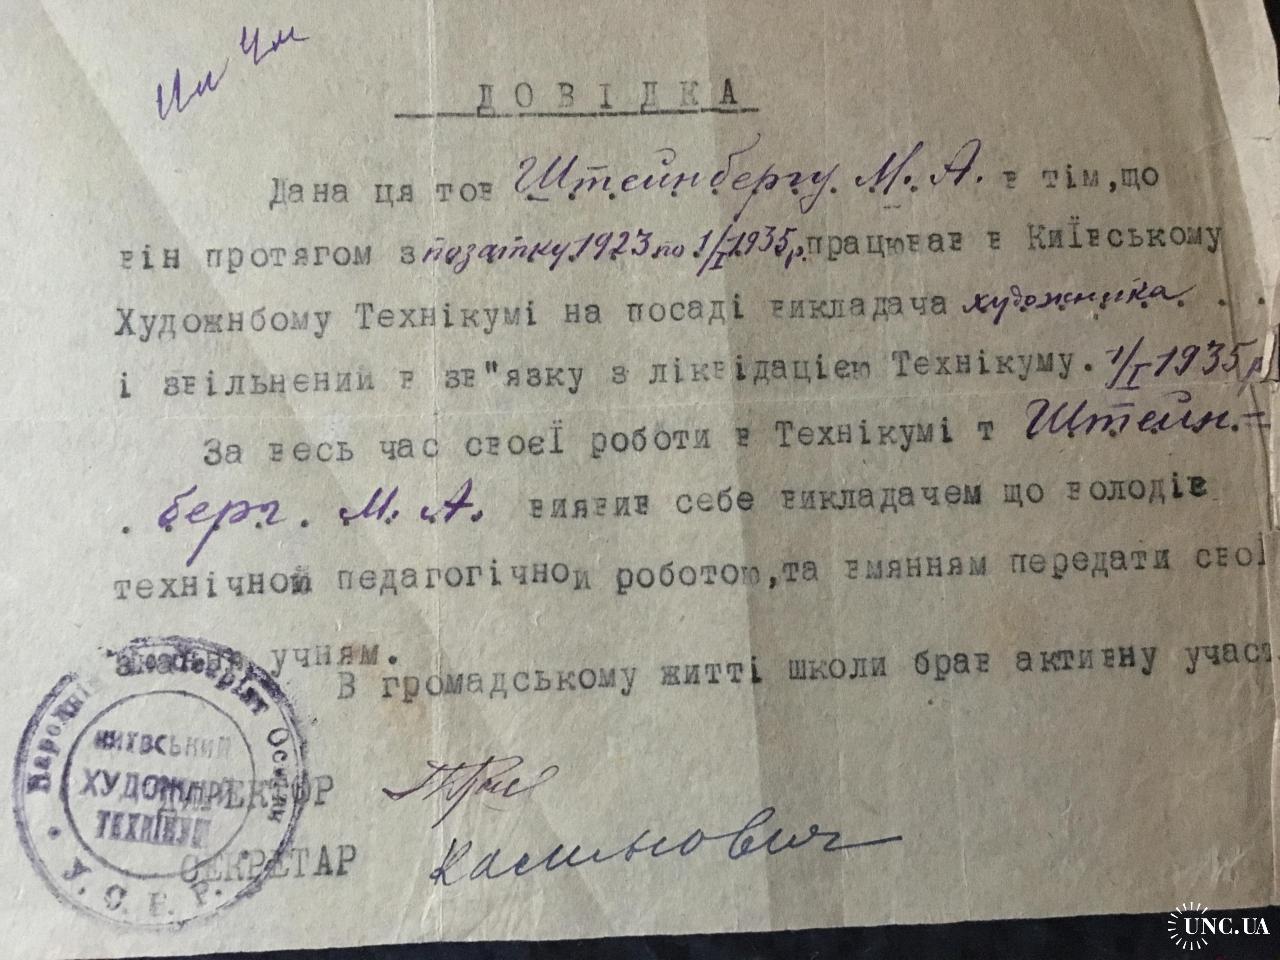 ДОВІДКА
Дана ця тов Штейнбергу М. А. в тім,що
він протягом з позатку 1923 по 1/I 1935р. працював в КиЇвському
Художнбому Технікумі на посаді викладача художника . . .
і звільнений в зв"язку з ліквідацією Технікуму. 1/I 1935 р
За весь час своєЇ роботи в Технікумі т Штейн-
. берг . М. А. виявив себе викладачем що володів
технічной педагогічной роботою,та вмянням передати свої
знання учням.
В громадському житті школи брав активну участ
ДИРЕКТОР
СЕКРЕТАР Калинович
Народній Комісаріят Освіти
У. С. Р. Р.
КИЇВСЬКИЙ
ХУДОЖНІЙ
ТЕХНІКУМ
UNC.UA